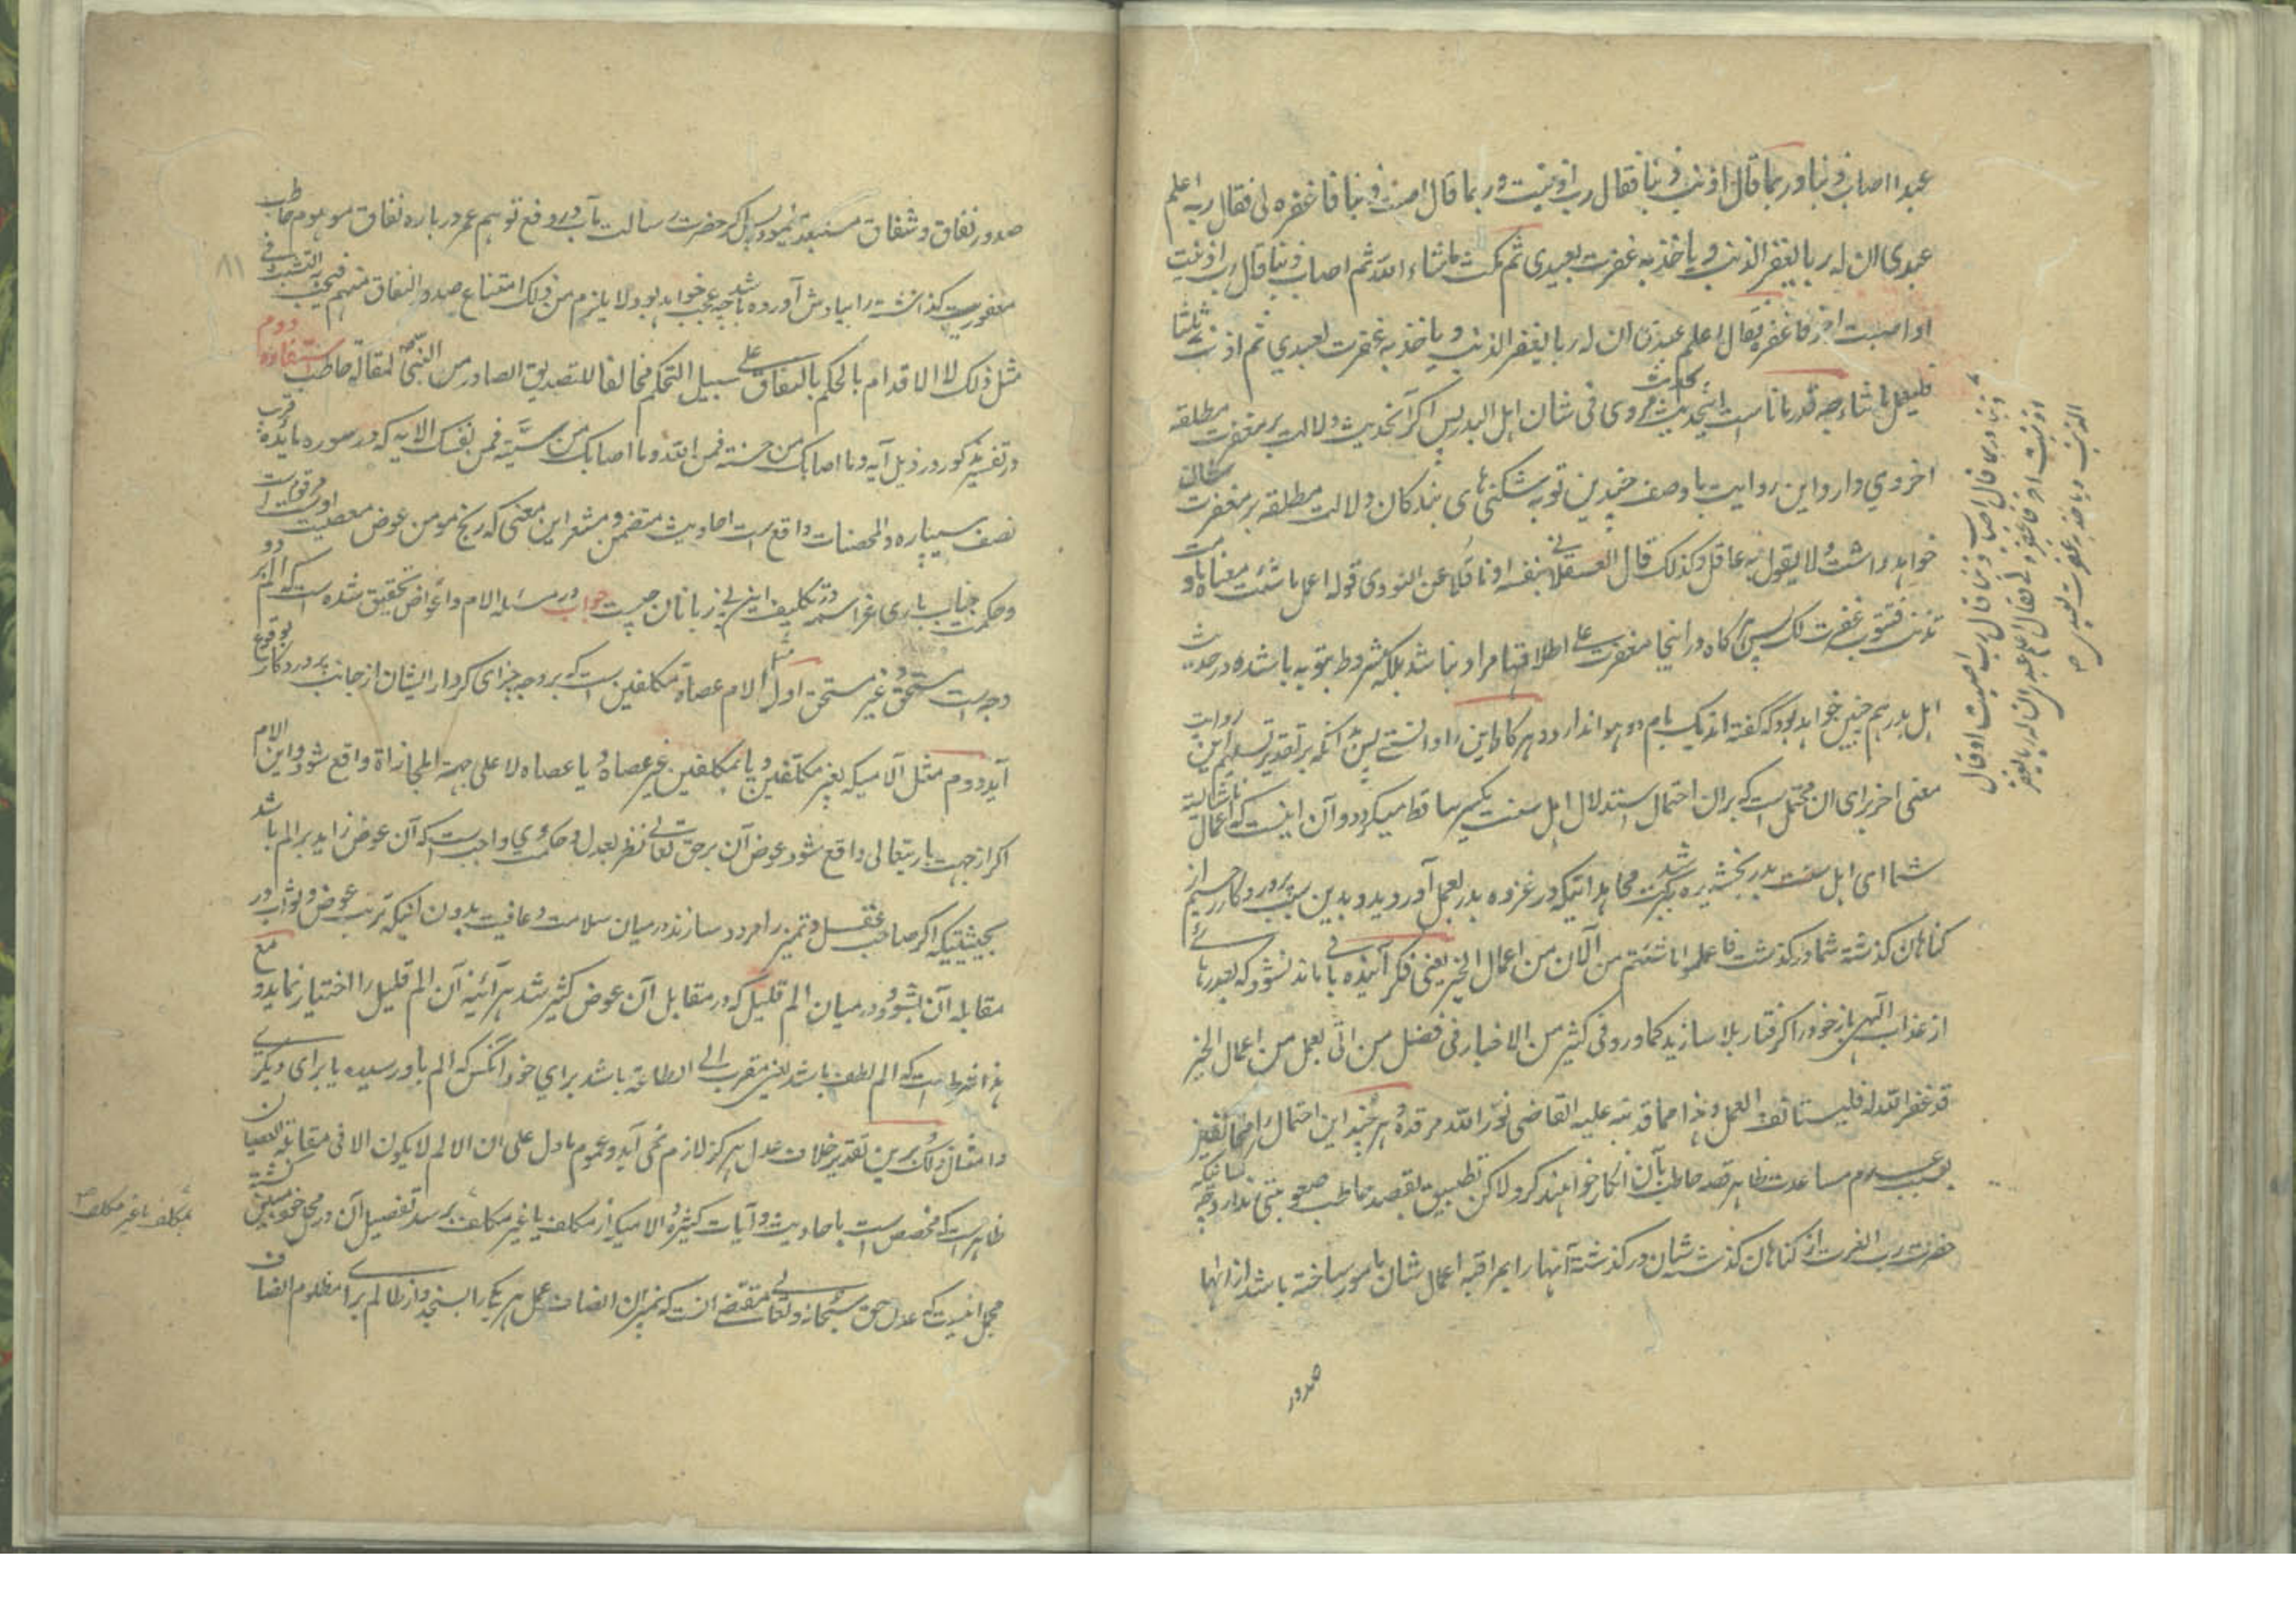 عبدا اصاب ذنبا وربما قال اذنب ذنبا فقال رب اذنبت وربما قال اصبت ذنبا فاغفره لی فقال ربه اعلم
عبدی ان له ربا یغفر الذنب و یاخذ به غفرت لعبدی ثم مکث ماشاء الله ثم اصاب ذنبا قال رب اذنبت
او اصبت اخر فاغفره فقال اعلم عبدی ان له ربا یغفر الذنب و یاخذ به غفرت لعبدی ثم اذنب ثلثا
فلیعمل ما شاء چه قدر مانا است اینحدیث بحدیث مروی فی شان اهل البدر پس اگر آنحدیث دلالت بر مغفرت مطلقه
اخروی دارد این روایت با وصف چندین توبه شکنی های بندکان دلالت مطلقه بر مغفرت شان
خواهد داشت ولا یقول به عاقل وکذلک قال العسقلانی بنفسه او ناقلا عن النووی قوله اعمل ما شئت معناه ما دمت
تذنب فتتوب غفرت لک پس هر کاه در اینجا مغفرت علی اطلاقها مراد نباشد بلکه مشروط بتوبه باشد در حدیث
اهل بدر هم چنین خواهد بود که گفته اند یک بام دو هوا ندارد و هر کاه این را دانستی پس انکه بر تقدیر تسلیم این روایت
معنی اخر برای ان محتمل است که بران احتمال استدلال اهل سنت یکسر ساقط میکردد و آن اینست که اعمال ناشایسته
شما ای اهل سنت بدر بخشیده شد ببرکت مجاهداتیکه در غزوه بدر بعمل آوردید و بدین سبب پروردکار رحیم از
کناهان کذشته شما در کذشت فاعملوا ما شئتم من الآن من اعمال الخیر یعنی فکر آینده باید نشود که بعد رهائی
از عذاب الهی باز خود را کرفتار بلا سازید کما ورد فی کثیر من الاخبار فی فضل من اتی بعمل من اعمال الخیر
قد غفر الله له فلیستانف العمل و هذا مما قد نبه علیه القاضی نور الله مرقده و هر چند این احتمال را مخالفین
بسبب عدم مساعدت ظاهر قصه حاطب بآن انکار خواهند کرد لاکن تطبیق بقصه حاطب صعوبتی ندارد چه کسانیکه
حضرت رب العزت از کناهان کذشته شان در کذشته آنها را بمراقبه اعمال شان مامور ساخته باشد از انها
صدور
ذنبا وربما قال اصاب ذنبا قال رب اصبت او قال
اذنبت اخر فاغفره لی فقال اعلم عبدی ان له ربا یغفر
الذنب و یاخذ به غفرت لعبدی
۸۱
صدور نفاق و شقاق مستبعد نمود پس اگر حضرت رسالت مآب در دفع توهم عمر درباره نفاق موهوم حاطب
مغفرت کذشته را بیادش آورده باشد چه عجب خواهد بود ولا یلزم من ذلک امتناع صدور النفاق منهم فیجب التثبت فی
مثل ذلک لا الاقدام بالحکم بالنفاق علی سبیل التحکم مخالفا للتصدیق الصادر من النبی لمقاله حاطب استفاده دوم
در تفسیر مذکور در ذیل آیه وما اصابک من حسنة فمن الله وما اصابک من سیئة فمن نفسک الایه که در سوره مائده قرب
نصف سیپاره والمحصنات واقع است احادیث متضمن و مشعر این معنی که رنج مومن عوض معصیت اوست مرقوم است
و حکمت جناب باری عز اسمه در تکلیف این بی زبانان چیست جواب در مسئله الام و اعواض تحقیق شده است که الم بر دو
وجه است مستحق و غیر مستحق اول مثل الام عصاة مکلفین است که بر وجه جزای کردار ایشان از جانب پروردکار بوقوع
آید دوم مثل آلامیکه بغیر مکلفین و یا بمکلفین غیر عصاة و یا عصاة لا علی جهة المجازاة واقع شود و این الام
اکر از جهت باریتعالی واقع شود عوض آن بر حق تعالی نظر بعدل و حکمت وی واجب است که آن عوض زاید بر الم باشد
بحیثیتیکه اکر صاحب عقل و تمیز را مردد سازند در میان سلامت و عافیت بدون اینکه ترتب عوض و ثواب در
مقابله آن بشود و در میان الم قلیل که در مقابل آن عوض کثیر شد هر آئینه آن الم قلیل را اختیار نماید و مع
هذا شرط است که الم لطف باشد یعنی مقرب الی الطاعة باشد برای خود آنکس که الم باو رسیده یا برای دیگری
و امثال ذلک برین تقدیر خلاف عدل هرکز لازم نمی آید و عموم ما دل علی ان الالم لا یکون الا فی مقابلة العصیان
ظاهر است که مخصص است باحادیث و آیات کثیره و الامیکه از مکلف یا غیر مکلف برسد تفصیل آن در محل خود مبین کشته
مجمل اینست که عدل حق سبحانه و تعالی مقتضی انست که بمیزان انصاف عمل هر یک را بسنجد و از ظالم برای مظلوم انصاف
بمکلف یا غیر مکلف